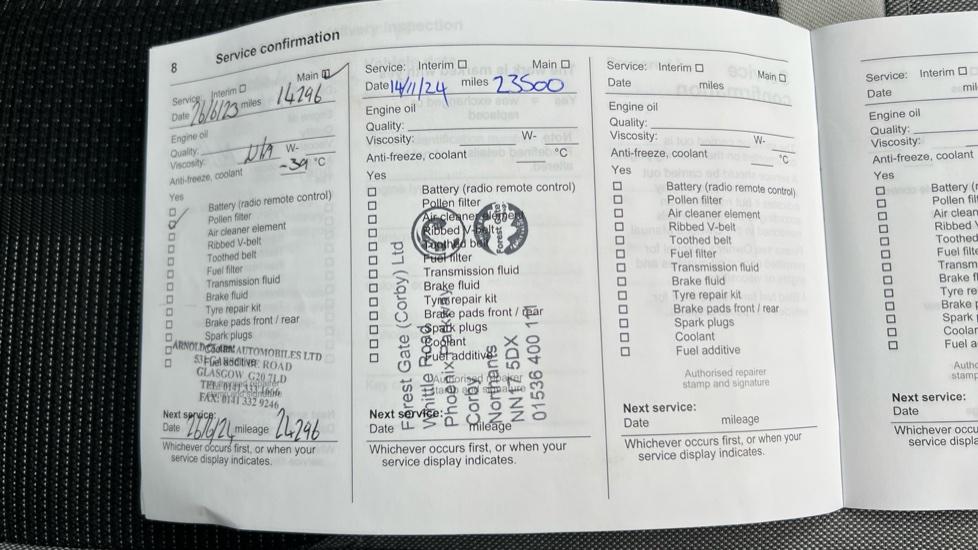 8 Service confirmation
Service: Interim Main
Date 26/6/23 miles 14296
Engine oil
Quality:
Viscosity: W-
Anti-freeze, coolant -39 °C
Yes
Battery (radio remote control)
Pollen filter
Air cleaner element
Ribbed V-belt
Toothed belt
Fuel filter
Transmission fluid
Brake fluid
Tyre repair kit
Brake pads front / rear
Spark plugs
Coolant
Fuel additive
ARNOLD CLARK AUTOMOBILES LTD
ROAD
GLASGOW G20 7LD
TEL: 0141
FAX: 0141 332 9246
Next service:
Date 26/6/24 mileage 24296
Whichever occurs first, or when your
service display indicates.
Service: Interim Main
Date 14/11/24 miles 23500
Engine oil
Quality:
Viscosity: W-
Anti-freeze, coolant °C
Yes
Battery (radio remote control)
Pollen filter
Air cleaner element
Ribbed V-belt
Toothed belt
Fuel filter
Transmission fluid
Brake fluid
Tyre repair kit
Brake pads front / rear
Spark plugs
Coolant
Fuel additive
Forest Gate
Forest Gate (Corby) Ltd
Whittle Road
Phoenix
Corby
Northants
NN17 5DX
01536 400
Authorised repairer
stamp and signature
Next service:
Date mileage
Whichever occurs first, or when your
service display indicates.
Service: Interim Main
Date miles
Engine oil
Quality:
Viscosity: W-
Anti-freeze, coolant °C
Yes
Battery (radio remote control)
Pollen filter
Air cleaner element
Ribbed V-belt
Toothed belt
Fuel filter
Transmission fluid
Brake fluid
Tyre repair kit
Brake pads front / rear
Spark plugs
Coolant
Fuel additive
Authorised repairer
stamp and signature
Next service:
Date mileage
Whichever occurs first, or when your
service display indicates.
Service: Interim
Date mil
Engine oil
Quality:
Viscosity:
Anti-freeze, coolant
Yes
Battery (r
Pollen filt
Air clean
Ribbed V
Toothed
Fuel filte
Transm
Brake fl
Tyre re
Brake p
Spark
Coolar
Fuel a
Autho
stamp
Next service:
Date
Whichever occu
service displa